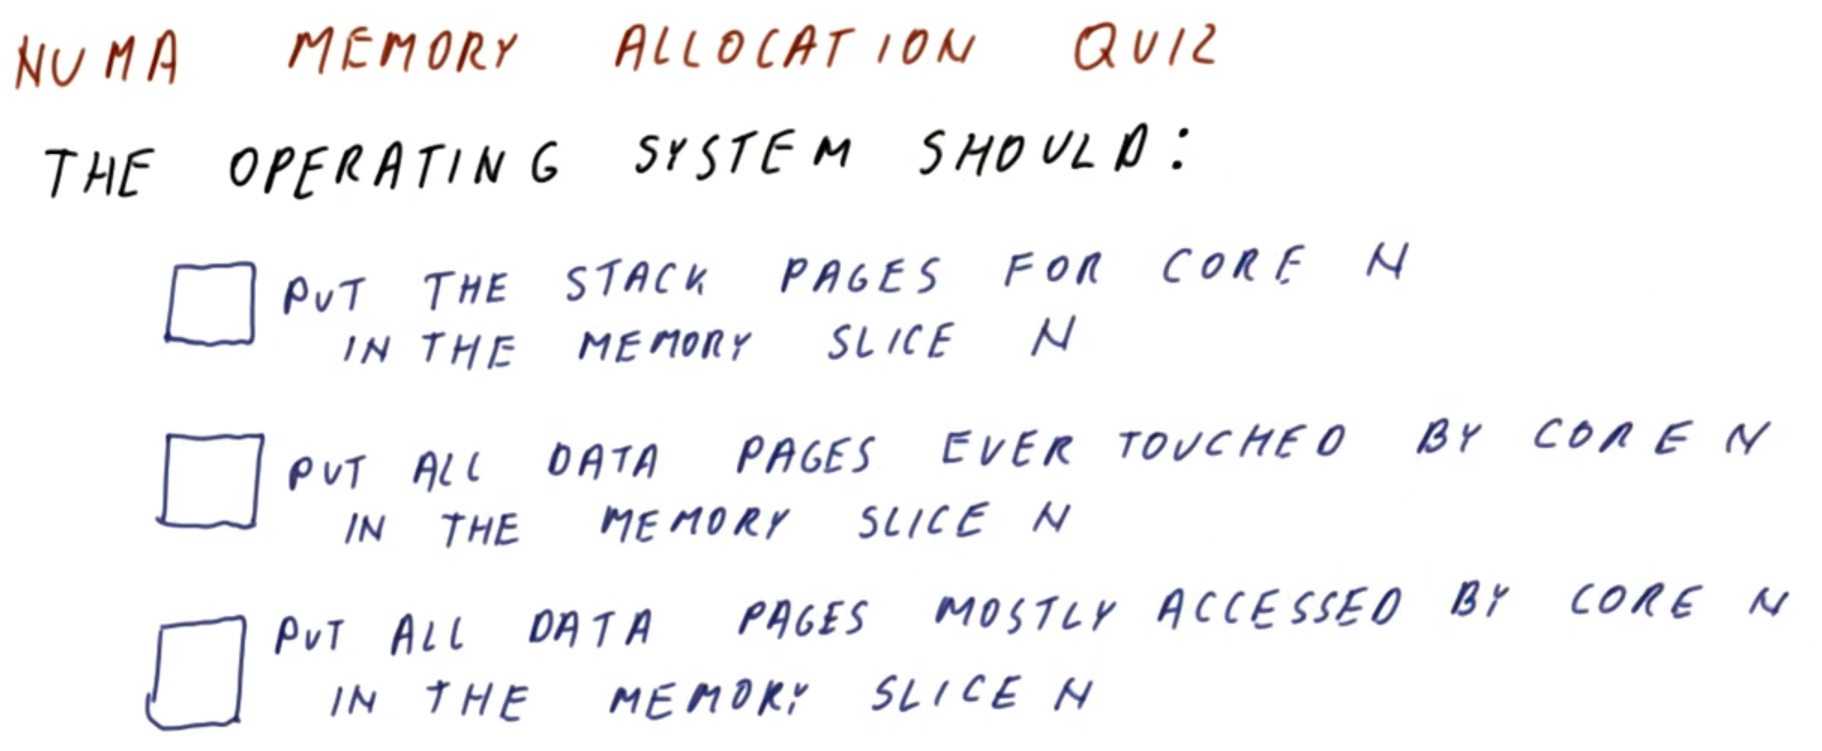 NUMA MEMORY ALLOCATION QUIZ
THE OPERATING SYSTEM SHOULD:
PUT THE STACK PAGES FOR CORE N
IN THE MEMORY SLICE N
PUT ALL DATA PAGES EVER TOUCHED BY CORE N
IN THE MEMORY SLICE N
PUT ALL DATA PAGES MOSTLY ACCESSED BY CORE N
IN THE MEMORY SLICE N